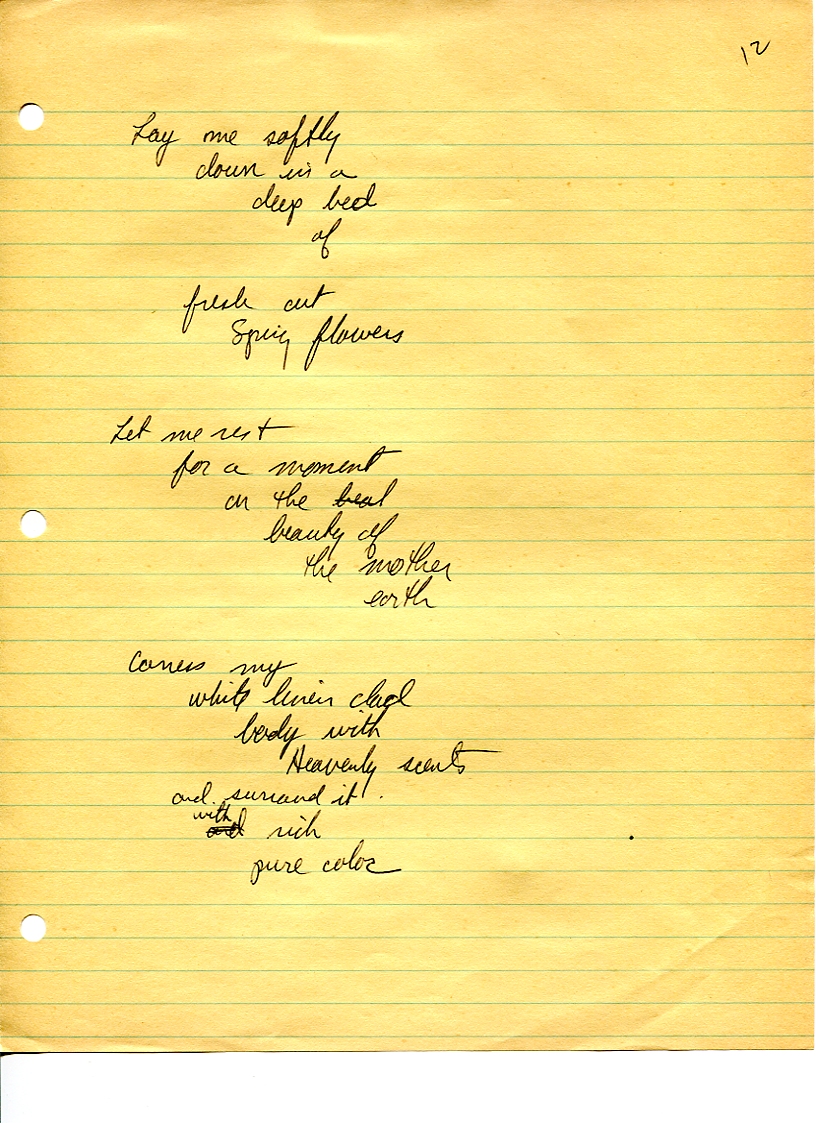 12
Lay me softly
down in a
deep bed
of
fresh cut
Spring flowers
Let me rest
for a moment
on the beat
beauty of
the mother
earth
Caress my
white linen clad
body with
Heavenly scents
and surround it.
with
and rich
pure color